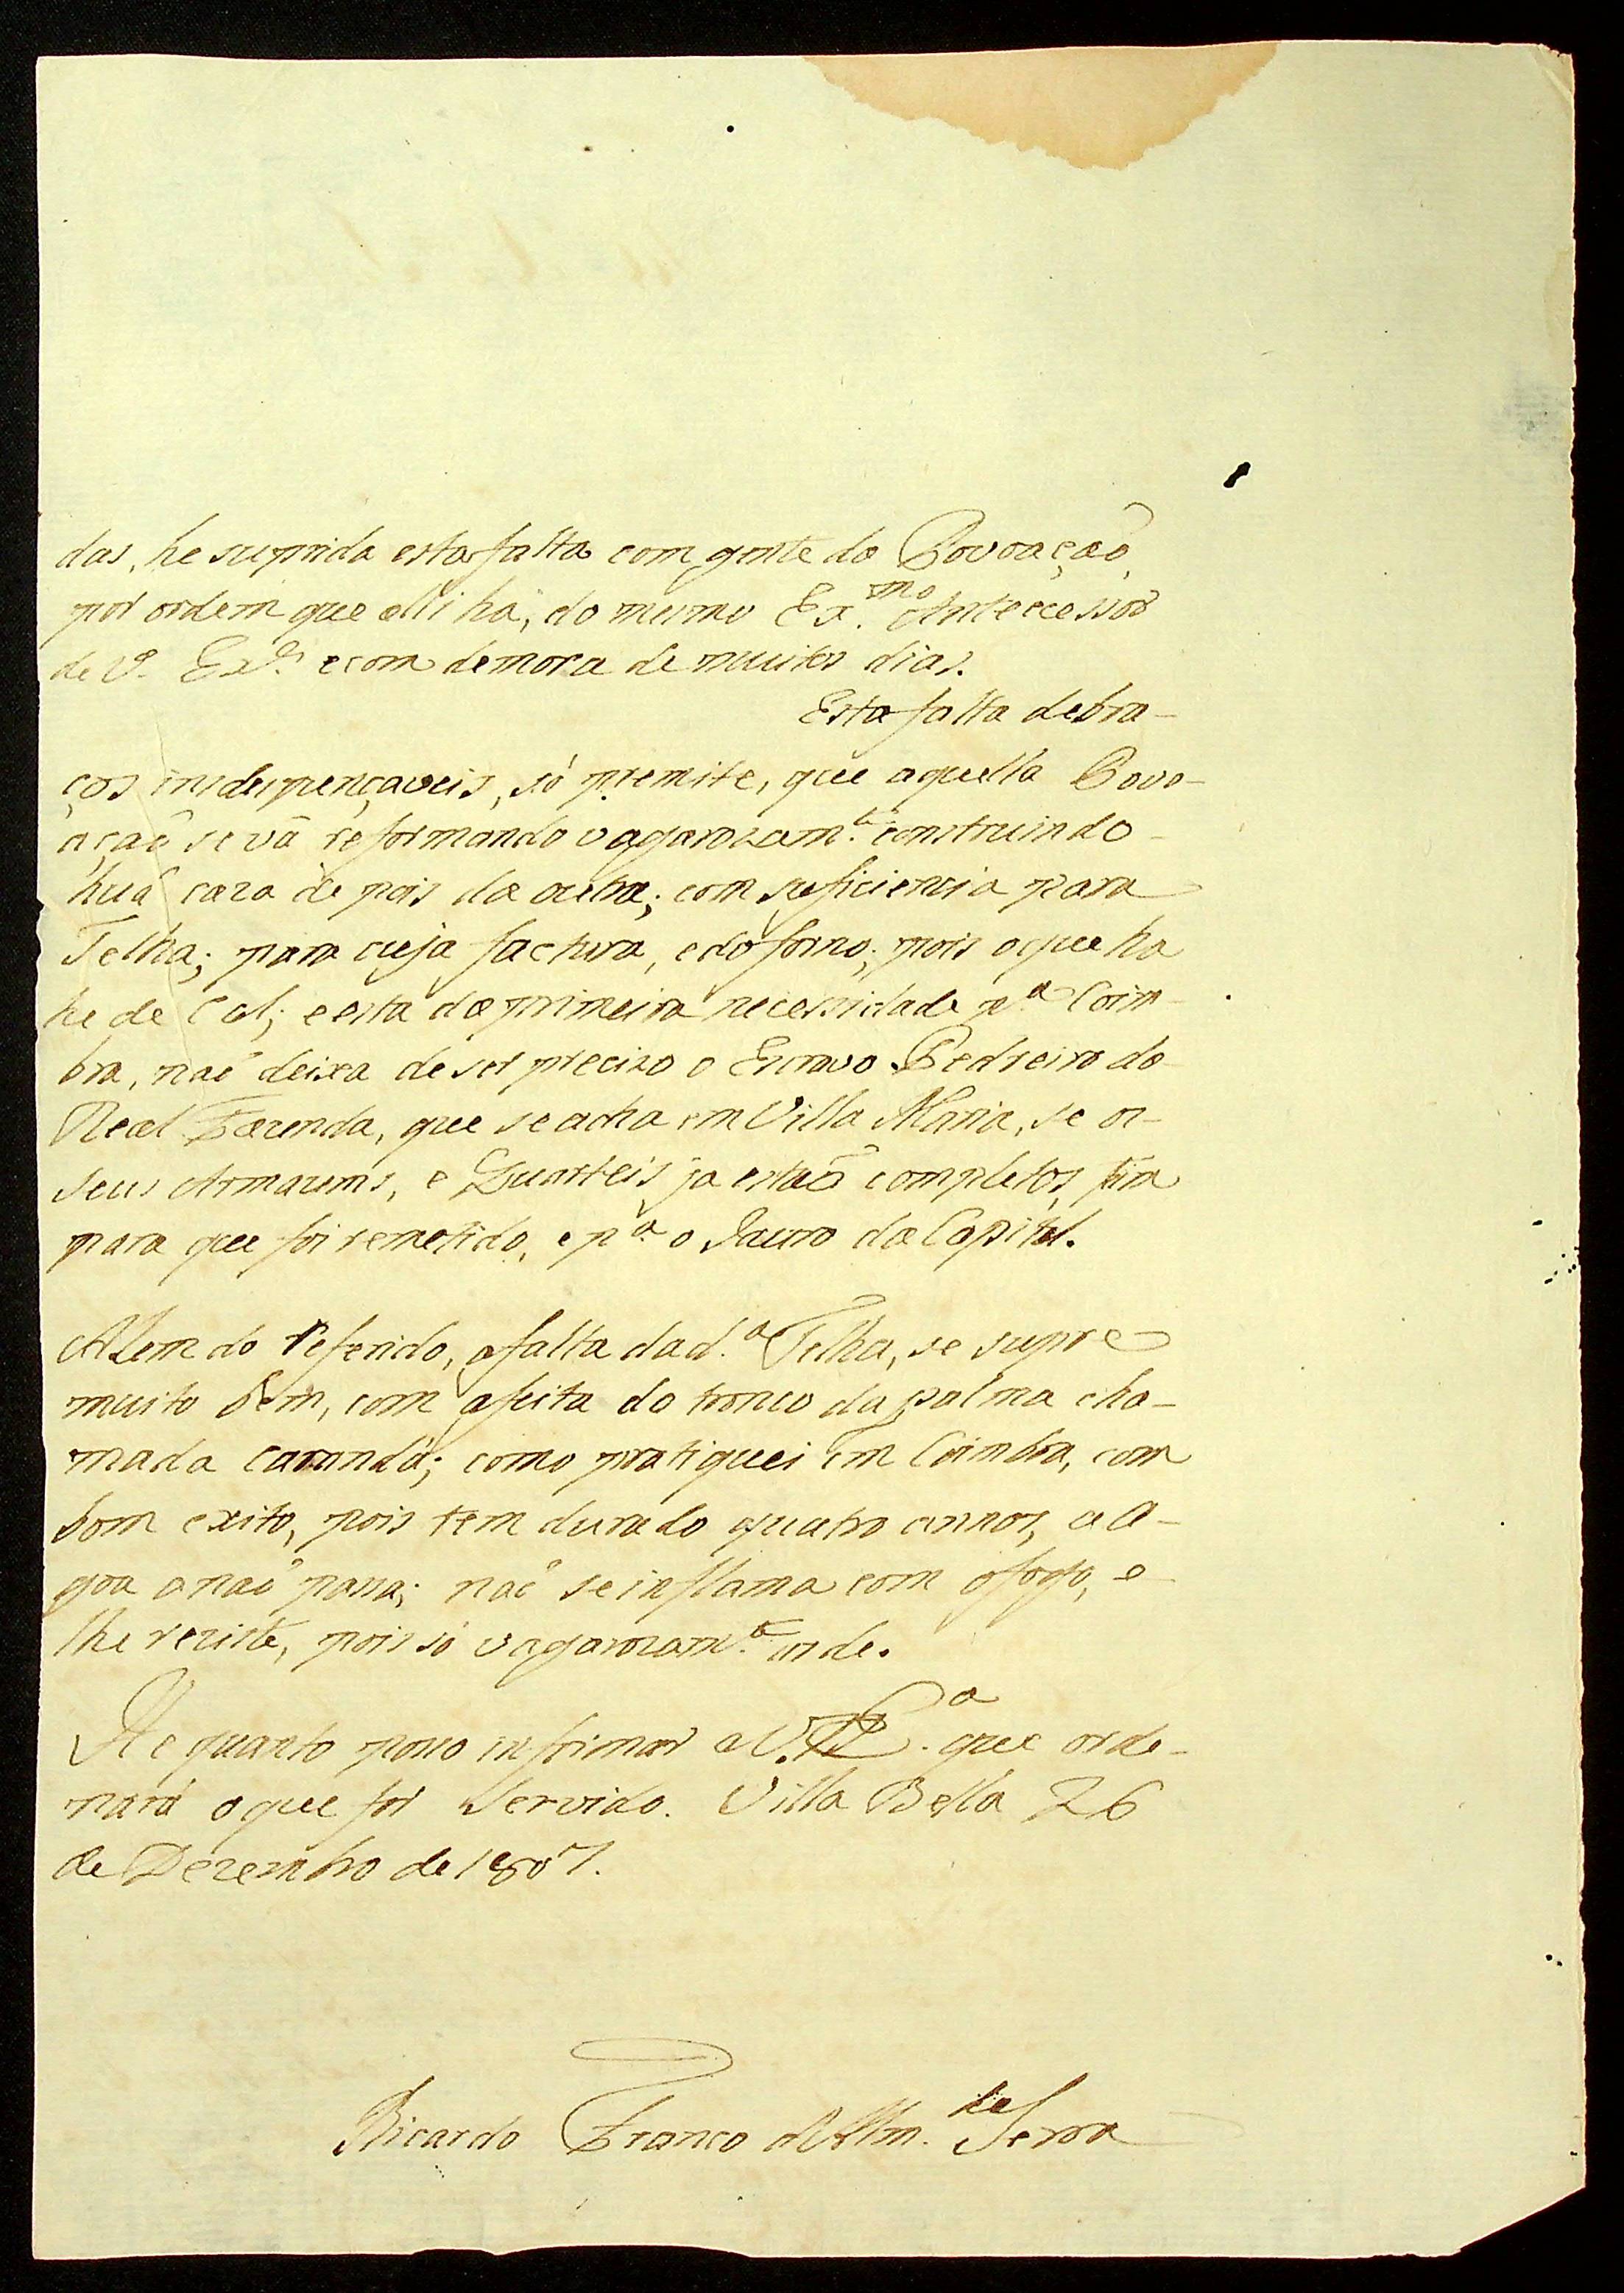 das, he suprida esta falta com gente da Povoação,
por ordem que alli há, do mesmo Ex.mo Antecessor
de V. Ex.ª e com demora de muitos dias.
Esta falta de bra-
ços indespençaveis, só premite, que aquella Povo-
açaõ se vá reformando vagarozam.te construindo
huã caza de pois da outra; com suficiencia para
Telha; para cuja factura, e do forno; pois o que ha
he de Cal; e esta da primeira necessidade p.ª Coim-
bra, naõ deixa de ser precizo o Escravo Pedreiro da
Real Fazenda, que se acha em Villa Maria, se os
seus Armazems, e Quarteis ja estaõ completos, fim
para que foi remetido, e p.ª o Jauro da Capital.
Alem do referido, a falta da d.ª Telha, se supre
muito bem, com a feita do tronco da palma cha-
mada carandá; como pratiquei em Coimbra, com
bom exito, pois tem durado quatro annos, a a-
goa a naõ passa; naõ se inflama com o fogo, e
lhe reziste, pois só vagarozam.te arde.
He quanto posso informar a V. Ex.ª que orde-
nará o que for servido. Villa Bella 26
de Dezembro de 1807.
Ricardo Franco d'Alm.da Serra